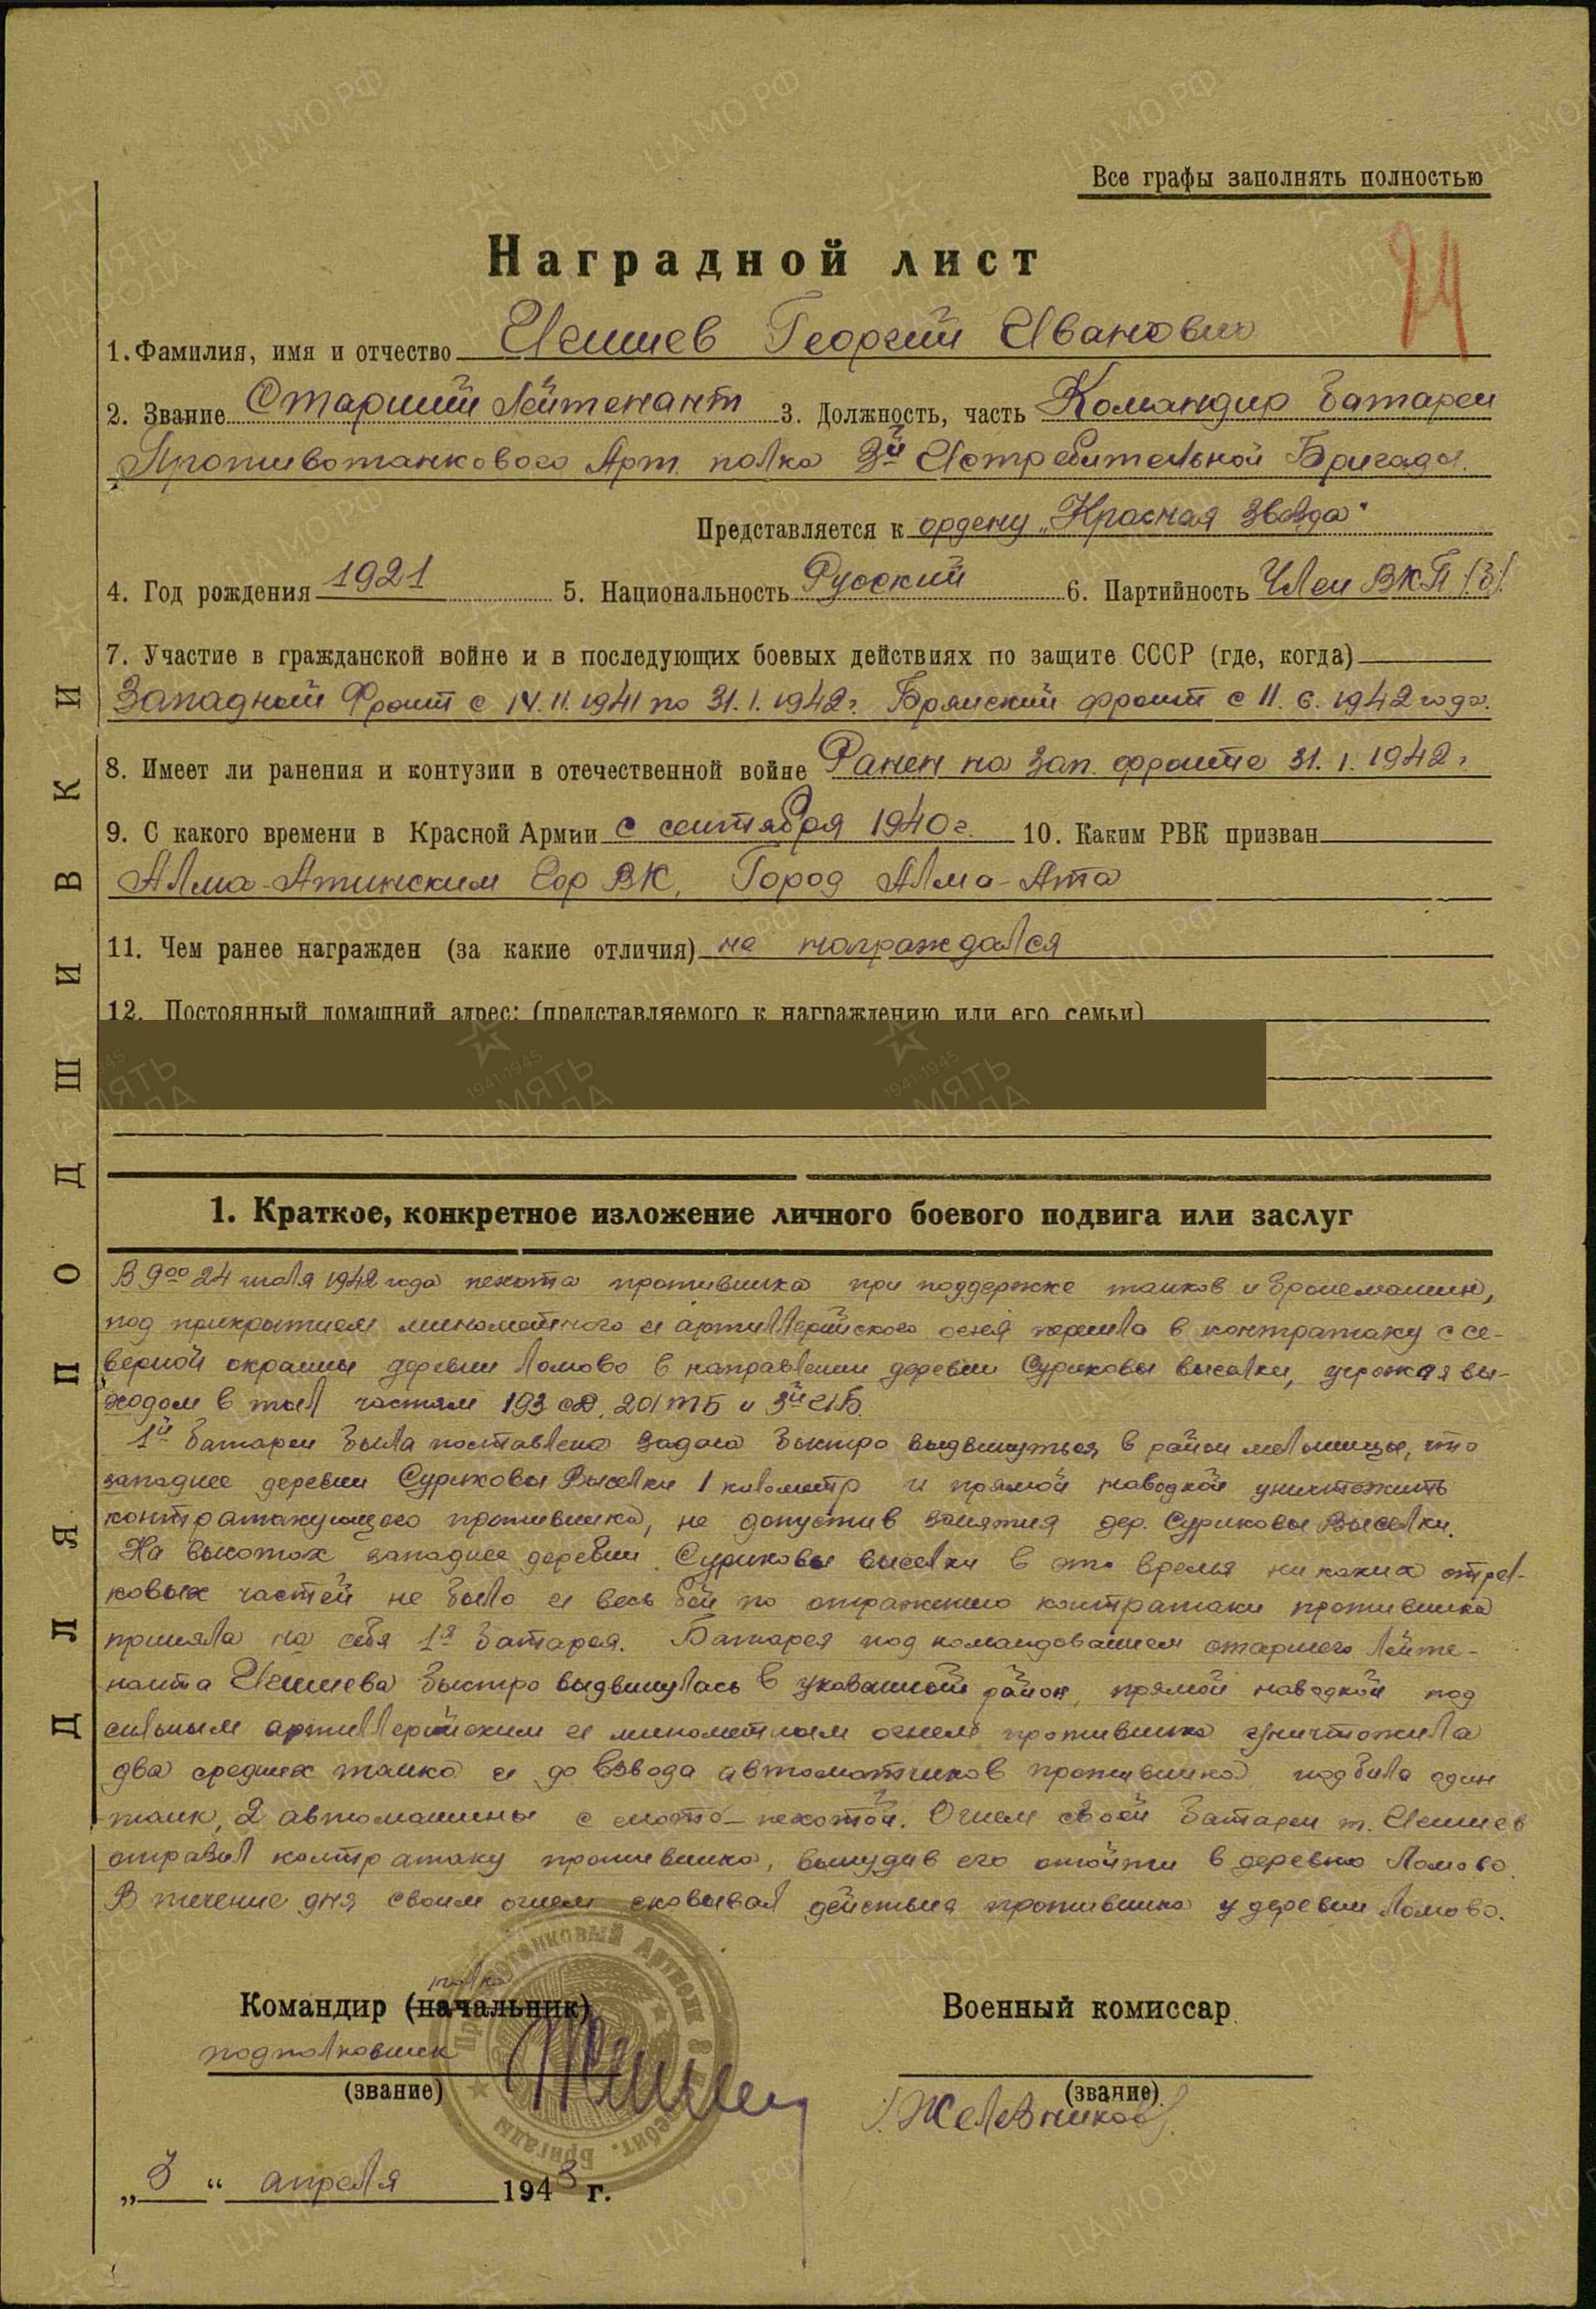 Все графы заполнять полностью
24
Наградной лист
1. Фамилия, имя и отчество Георгий Иванович
2. Звание Старший Лейтенант 3. Должность, часть Командир батареи
Противотанкового Арт. полка 3й Истребительной Бригады.
Представляется к ордену „Красная Звезда"
4. Год рождения 1921 5. Национальность Русский 6. Партийность Член ВКП(б).
7. Участие в гражданской войне и в последующих боевых действиях по защите СССР (где, когда)
Западный Фронт с 14.11.1941 по 31.1.1942г. Брянский фронт с 11.6.1942 года.
8. Имеет ли ранения и контузии в отечественной войне Ранен на Зап. фронте 31.1.1942г.
9. С какого времени в Красной Армии с сентября 1940г. 10. Каким РВК призван
Алма-Атинским Гор ВК, Город Алма-Ата
11. Чем ранее награжден (за какие отличия) не награждался
12. Постоянный домашний адрес: (представляемого к награждению или его семьи)
1. Краткое, конкретное изложение личного боевого подвига или заслуг
В 9 00 24 июля 1942 года пехота противника при поддержке танков и бронемашин,
под прикрытием минометного и артиллерийского огня перешла в контратаку с се-
верной окраины деревни Ломово в направлении деревни Суриковы выселки, угрожая вы-
ходом в тыл частям 193 сд, 201 ТБ и 3й ИБ.
1й батареи была поставлена задача быстро выдвинуться в район мельницы, что
западнее деревни Суриковы Выселки 1 километр и прямой наводкой уничтожить
контратакующего противника, не допустив занятия дер. Суриковы Выселки.
На высотах западнее деревни Суриковы выселки в это время ни каких стрел-
ковых частей не было и весь бой по отражению контратаки противника
приняла на себя 1я батарея. Батарея под командованием старшего лейте-
нанта быстро выдвинулась в указанный район, прямой наводкой под
сильным артиллерийским и минометным огнем противника уничтожила
два средних танка и до взвода автоматчиков противника, подбила один
танк, 2 автомашины с мото-пехотой. Огнем своей батареи т.
отразил контратаку противника, вынудив его отойти в деревню Ломово.
В течение дня своим огнем сковывал действия противника у деревни Ломово.
полка
Командир (начальник) Военный комиссар
подполковник
(звание) (звание)
/Железников/.
„3" апреля 1943 г.
ДЛЯ ПОДШИВКИ
ЦА МО РФ
ПАМЯТЬ НАРОДА
1941-1945